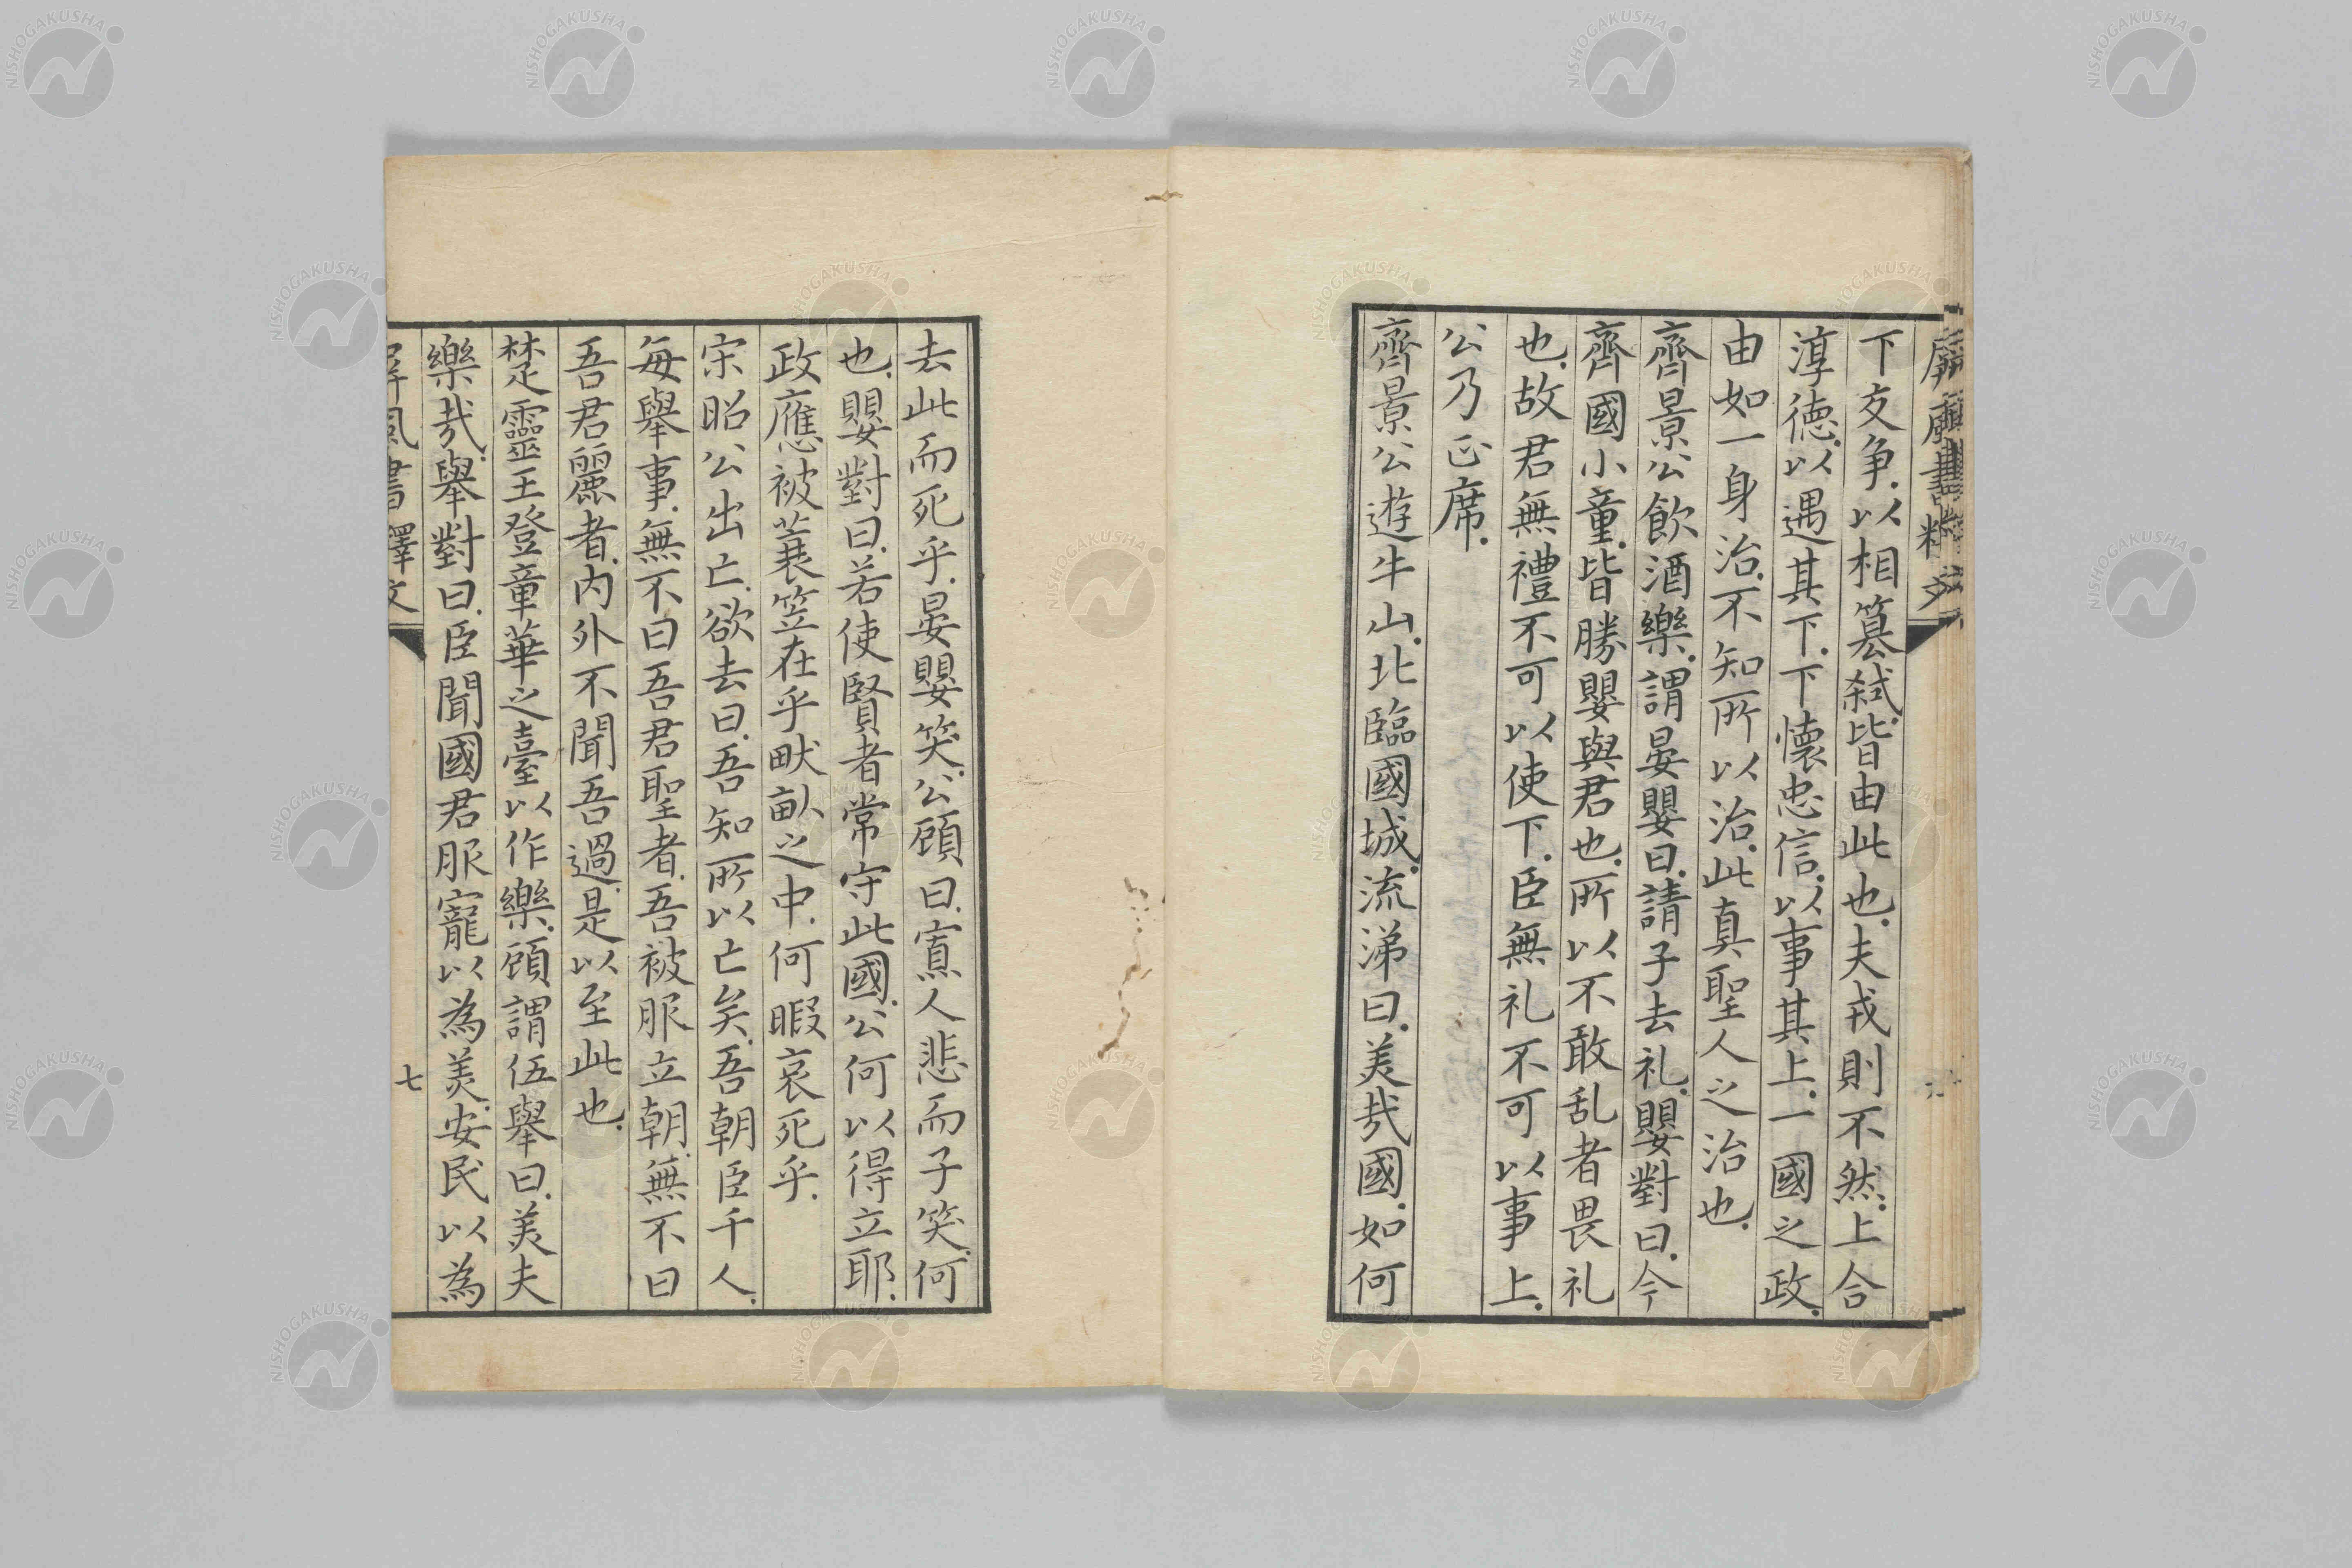 下交争.以相篡弑.皆由此也.夫戎則不然.上合
淳德.以遇其下.下懷忠信.以事其上.一國之政.
由如一身治.不知所以治.此真聖人之治也.
齊景公飲酒樂.謂晏嬰曰.請子去礼.嬰對曰.今
齊國小童.皆勝嬰與君也.所以不敢乱者畏礼
也.故君無禮不可以使下.臣無礼不可以事上.
公乃正席.
齊景公遊牛山.北臨國城.流涕曰.美哉國.如何
去此而死乎.晏嬰笑.公顧曰.寡人悲而子笑.何
也.嬰對曰.若使賢者常守此國.公何以得立耶.
政應被蓑笠在乎畎畝之中.何暇哀死乎.
宋昭公出亡.欲去曰.吾知所以亡矣.吾朝臣千人.
每舉事.無不曰吾君聖者.吾被服立朝.無不曰
吾君麗者.内外不聞吾過.是以至此也.
楚靈王登章華之臺以作樂.顧謂伍舉曰.美夫
樂哉.舉對曰.臣聞國君服寵以為美.安民以為
屏風書釋文
七
NISHOGAKUSHA